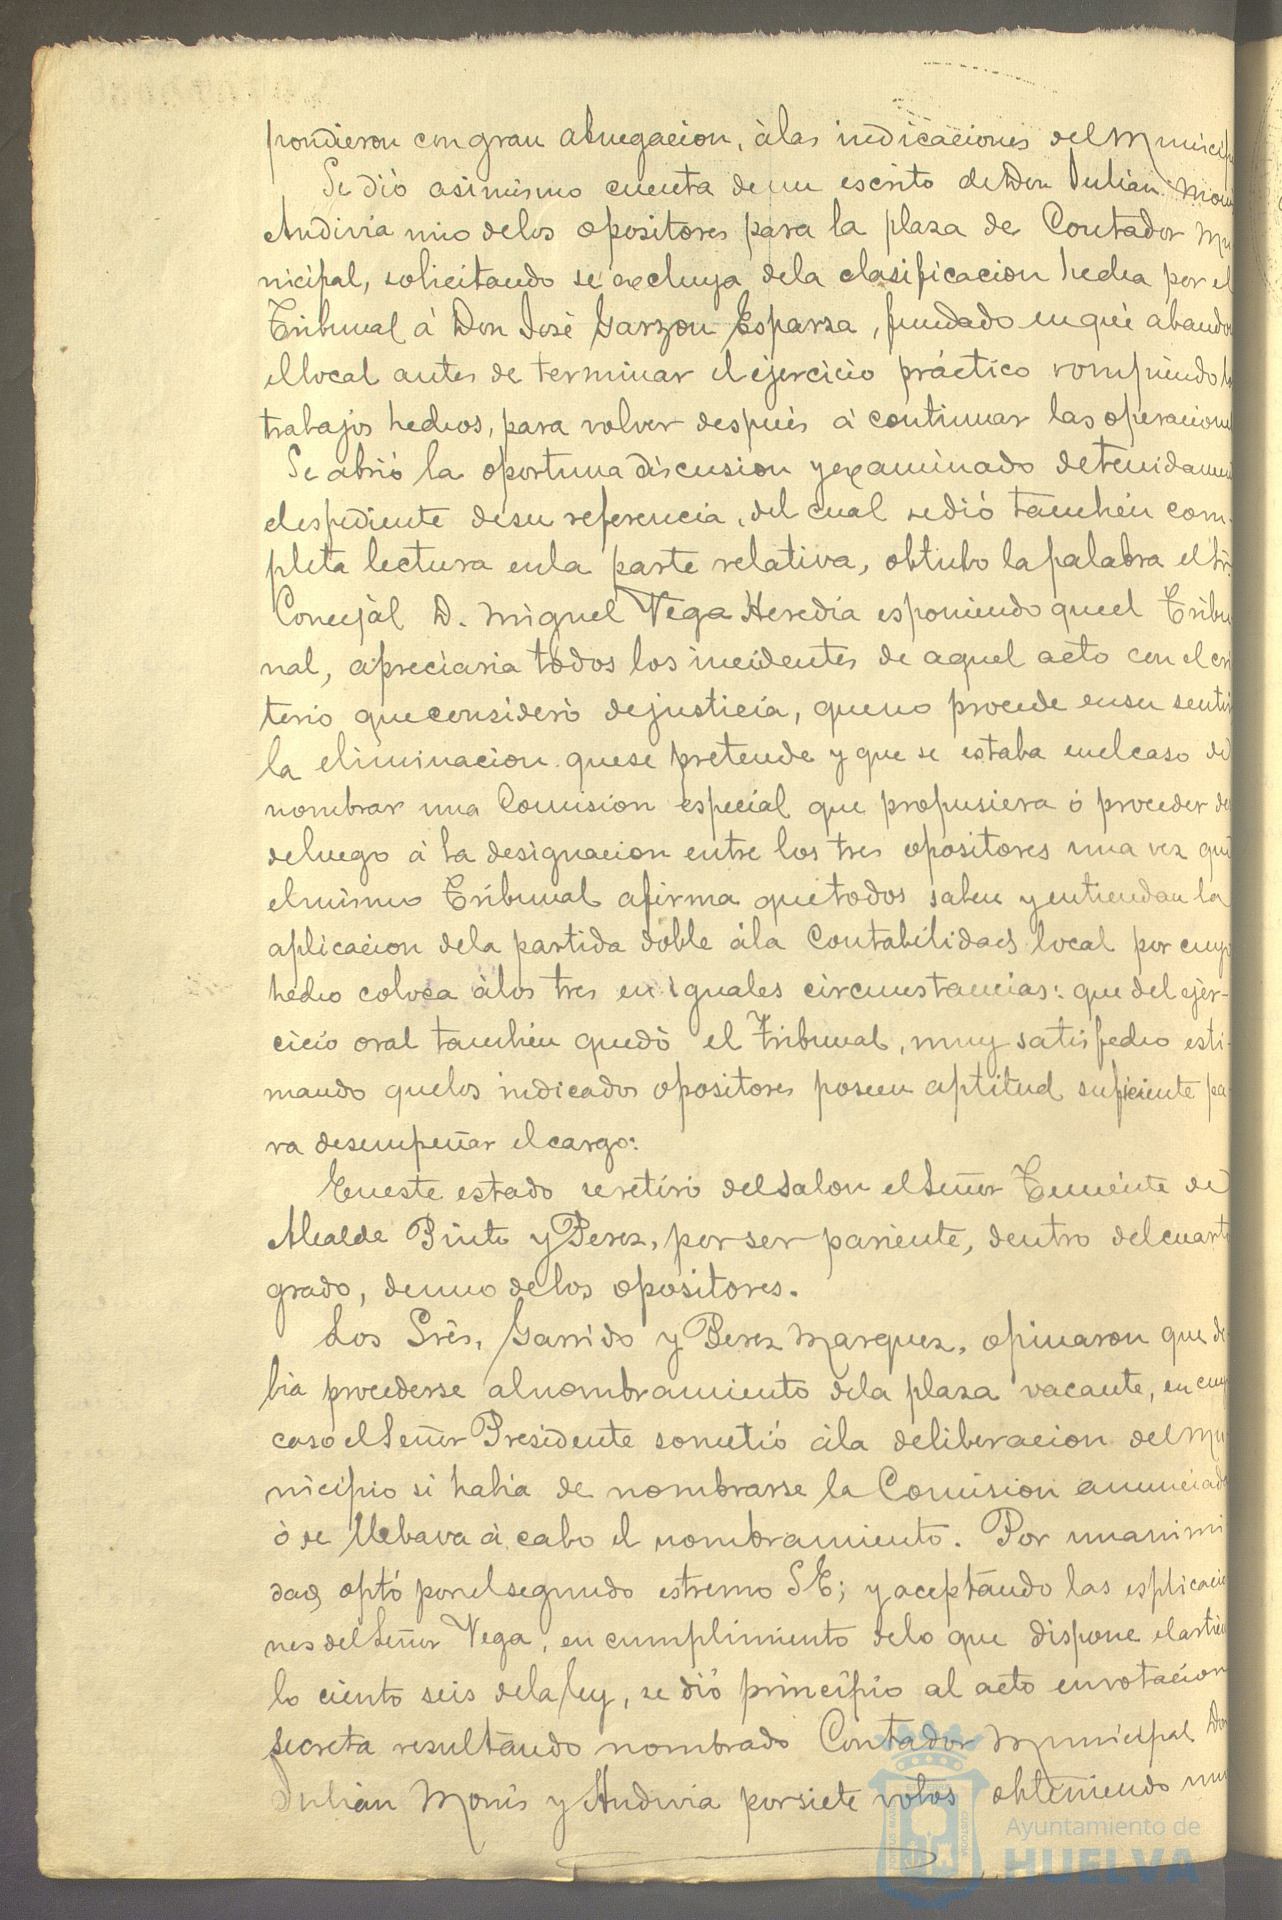 pondieron con gran abnegacion, à las indicaciones del Municip
Se dió asimismo cuenta de un escrito de Don Julian Moni
Andivia uno de los opositores para la plaza de Contador Mu
nicipal, solicitando se excluya de la clasificacion hecha por el
Tribunal á Don José Garzon Esparza, fundado en que abando
el local antes de terminar el ejercicio práctico rompiendo lo
trabajos hechos, para volver después á continuar las operacione
Se abrió la oportuna discusion y examinado detenidamen
el espediente de su referencia, del cual se dió tambien com-
pleta lectura en la parte relativa, obtubo la palabra el Sr.
Concejal D. Miguel Vega Heredia esponiendo que el Tribu
nal, apreciaria todos los incidentes de aquel acto con el cri
terio que consideró de justicia, que no procede en su sentir
la eliminacion que se pretende y que se estaba en el caso de
nombrar una Comision especial que propusiera ó proceder des
de luego á la designacion entre los tres opositores una vez que
el mismo Tribunal afirma que todos saben y entiendan la
aplicacion de la partida doble á la Contabilidad local por cuyo
hecho coloca á los tres en iguales circunstancias: que del ejer-
cicio oral tambien quedó el Tribunal, muy satisfecho esti-
mando que los indicados opositores poseen aptitud suficiente pa-
ra desempeñar el cargo:
En este estado se retiró del Salon el Señor Teniente de
Alcalde Pinto y Perez, por ser pariente, dentro del cuarto
grado, de uno de los opositores.
Los Srês. Garrido y Perez Marquez, opinaron que de
bia procederse al nombramiento de la plaza vacante, en cuyo
caso el Señor Presidente sometió á la deliberacion del Mu
nicipio si habia de nombrarse la Comision anunciada
ò se llebava á cabo el nombramiento. Por unanimi
dad, optó por el segundo estremo S.E; y aceptando las esplicacio
nes del Señor Vega, en cumplimiento de lo que dispone el artícu
lo ciento seis de la ley, se dió principio al acto en votacion
secreta resultando nombrado Contador Municipal Don
Julian Monis y Andivia por siete votos obteniendo uno
Ayuntamiento de
HUELVA